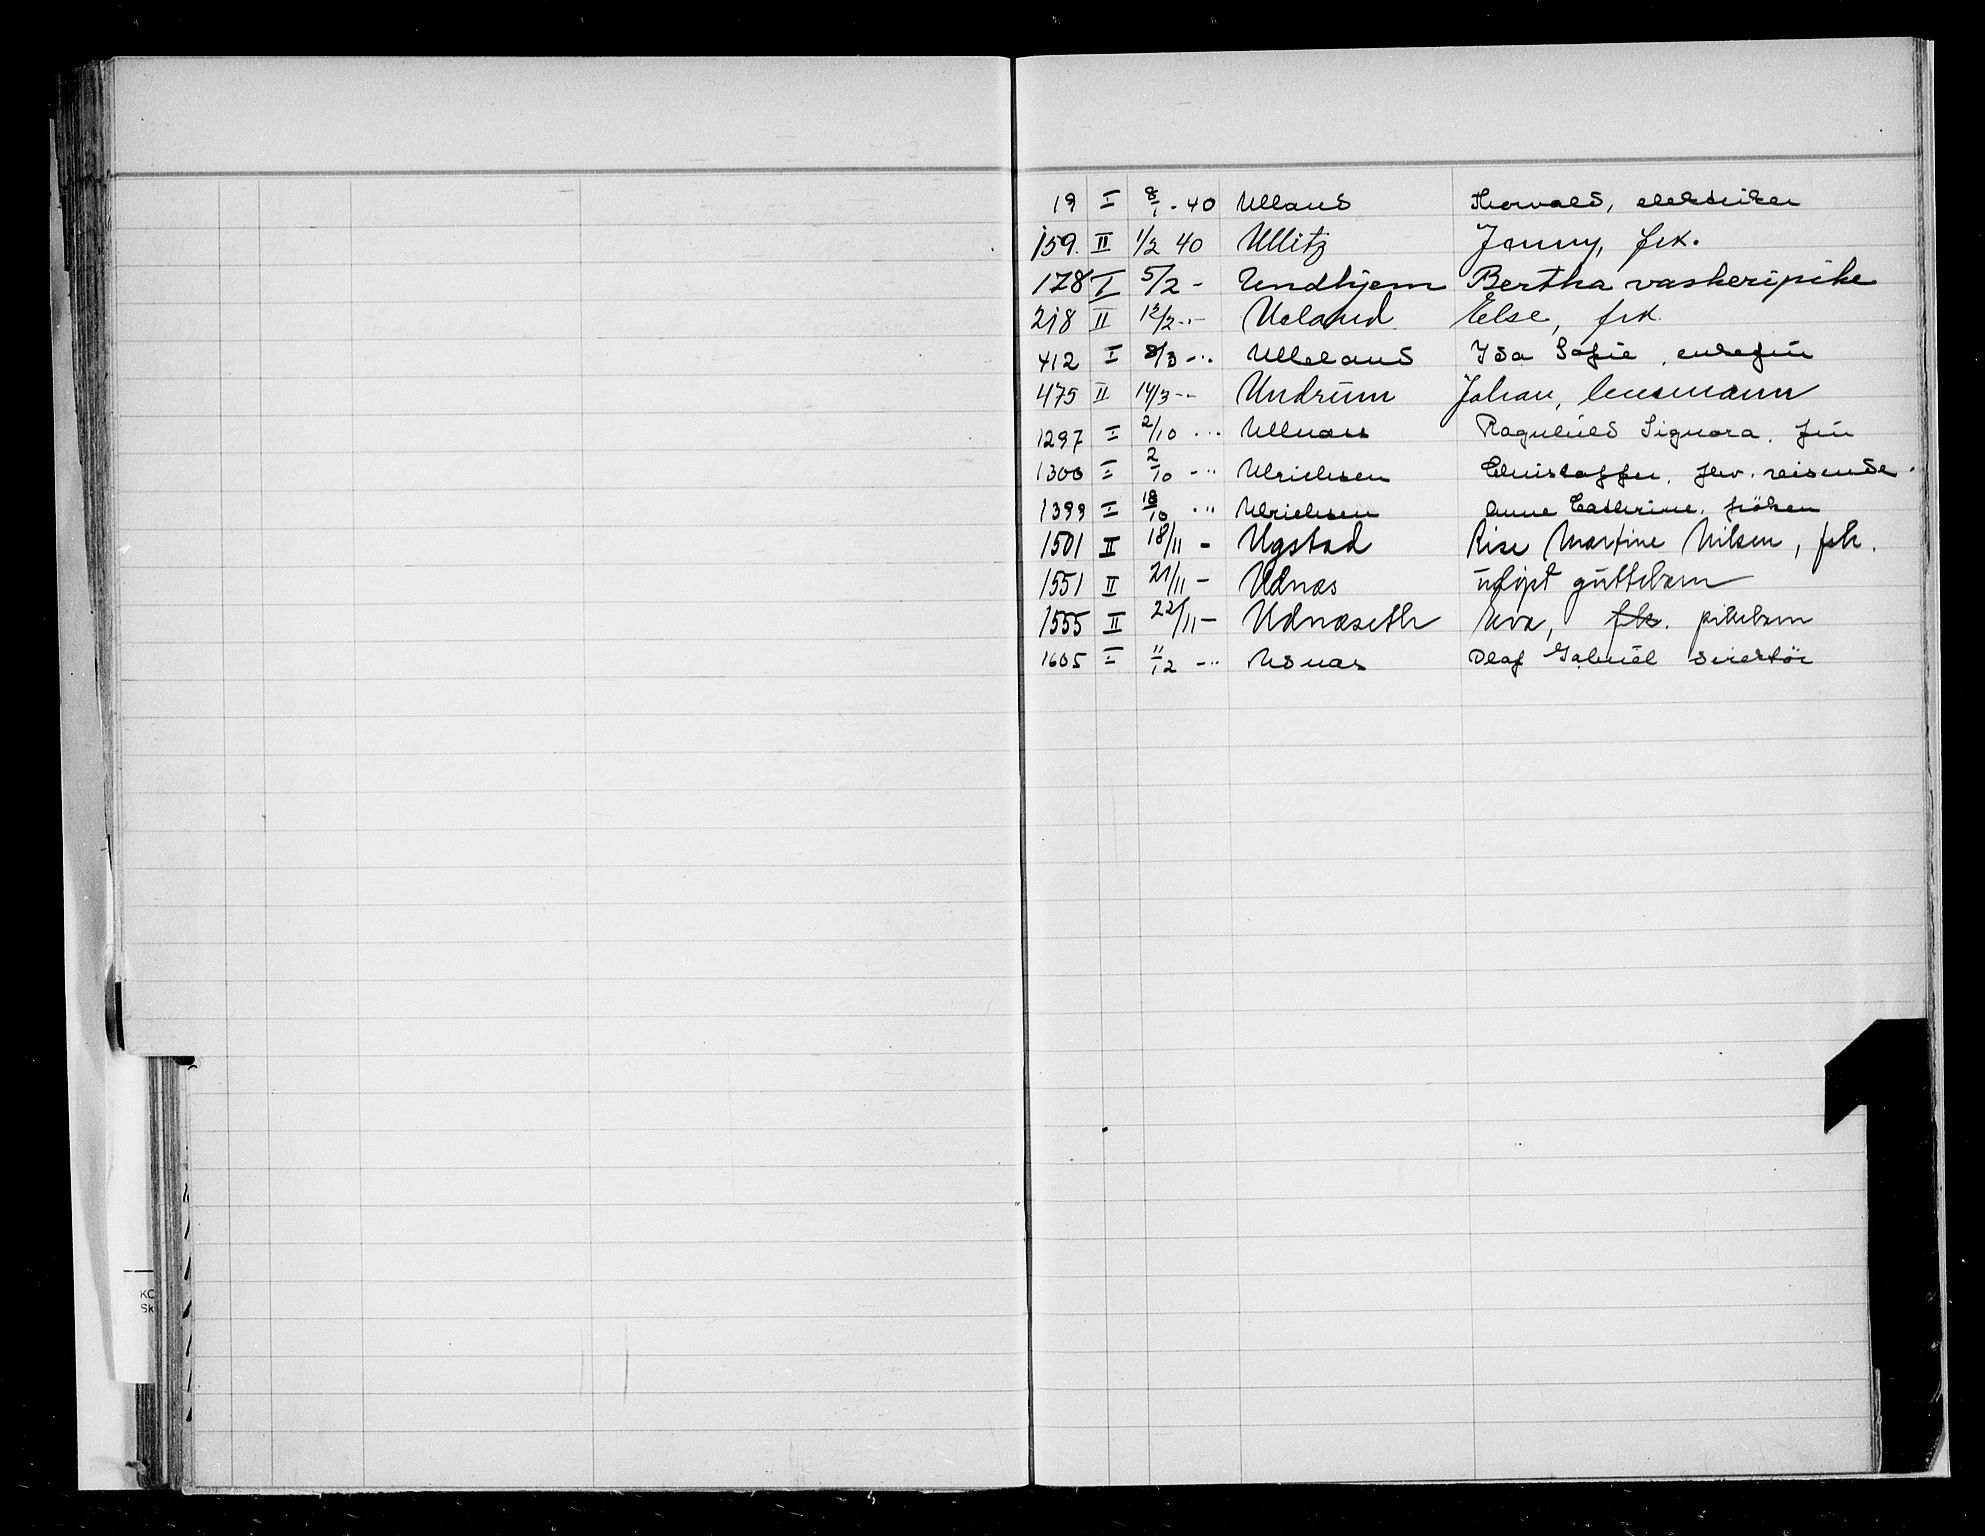 19 I 8/1 - 40 Ulland Thorvald, elektriker
159. II 1/2 40 Ullitz Jenny, frk.
178 I 5/2 - Undhjem Bertha vaskeripike
218 II 12/2 -"- Ueland Else, frk.
412 I 8/3 -"- Ulleland Ida Sofie, enkefru
475 II 14/3 -"- Undrum Johan, lensmann
1297 I 2/10 -"- Ullnæss Ragnhild Signora, fru
1300 I 2/10 -"- Ulrichsen Christoffer, fhv. reisende.
1399 I 18/10 -"- Ulrichsen Anne Cathrine, fröken
1501 II 18/11 - Ugstad Rise Martine Nilsen, frk.
1551 II 21/11 - Udnæs udöpt guttebarn
1555 II 22/11 - Udnæseth Eva, frk. pikebarn
1605 I 11/12 -"- Udnæs Olaf Gabriel direktör
KO
Sk